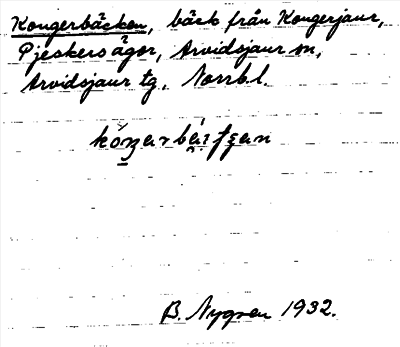 Kongerbäcken, bäck från Kongerjaur,
Pjeskers ägor, Arvidsjaur sn,
Arvidsjaur tg, Norrb.l.
B. Nygren 1932.